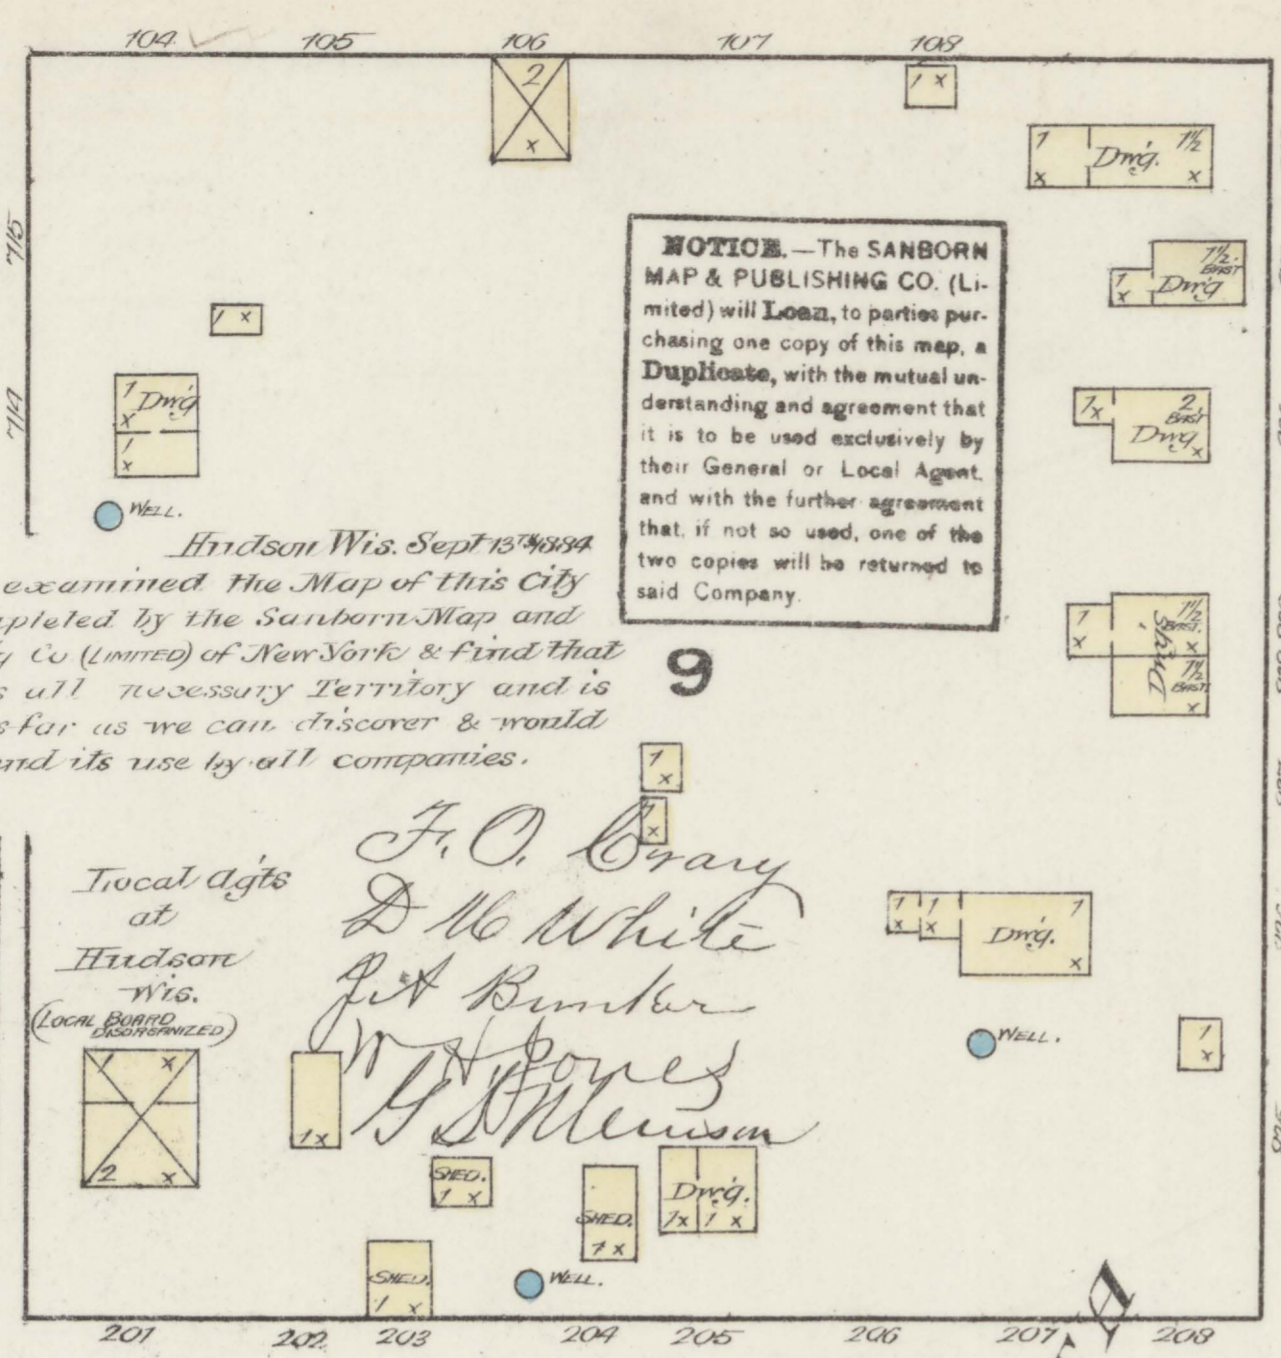 104 105 106 107 108
2
x
1 x
1 Dwg. 1½
x x
715
1½.
BAST
1 Dwg
x
NOTICE.—The SANBORN
MAP & PUBLISHING CO. (Li-
mited) will Loan, to parties pur-
chasing one copy of this map, a
Duplicate, with the mutual un-
derstanding and agreement that
it is to be used exclusively by
their General or Local Agent,
and with the further agreement
that, if not so used, one of the
two copies will be returned to
said Company.
1 x
714
1 Dwg
x
1
x
WELL.
1x 2
BAST
Dwg
x
Hudson Wis. Sept 13TH 1884
examined the Map of this City
pleted by the Sanborn Map and
Co (LIMITED) of New York & find that
s all necessary Territory and is
s far as we can discover & would
nd its use by all companies.
9
1 1½
BAST.
x x
Dwg's
1½
BAST
x
1
x
1
x
Local Agts
at
Hudson
Wis.
(LOCAL BOARD
DISORGANIZED)
F. O. Crary
D M White
J A Bunker
W H Jones
G S Merrison
1 1 1
x x Dwg.
x
WELL.
1
x
1 x
2 x
1x
SHED.
1 x
SHED.
1 x
Dwg.
1x 1 x
SHED.
1 x
WELL.
201 202 203 204 205 206 207 208